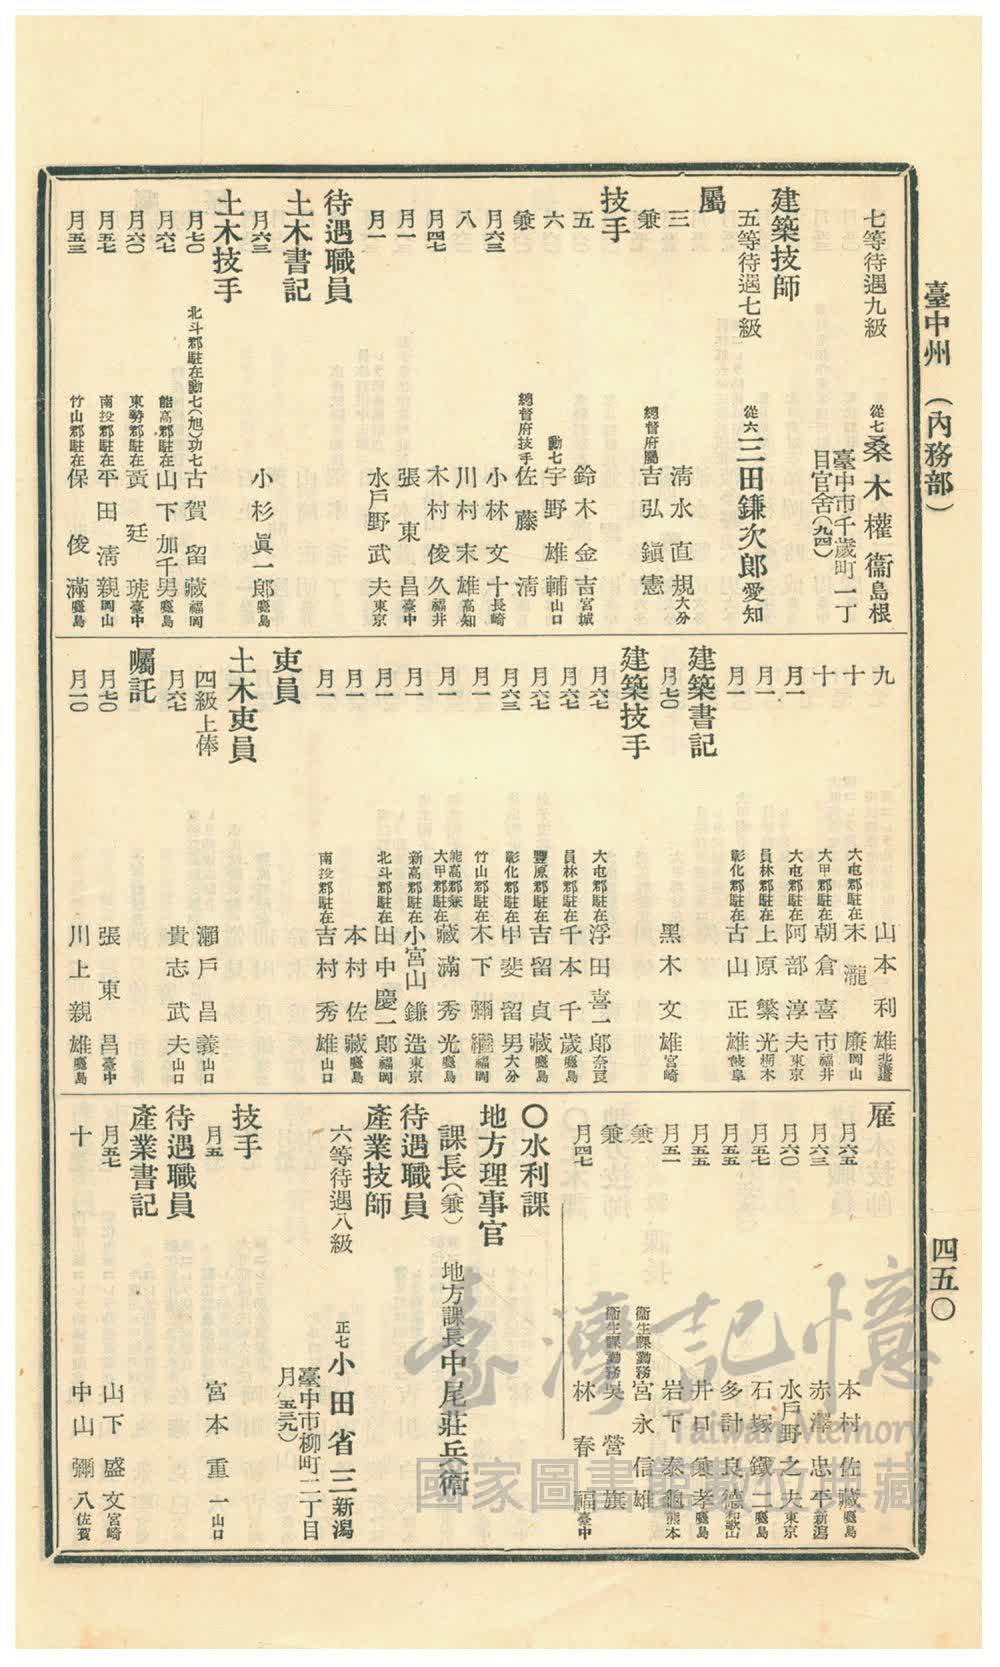 臺中州 (內務部)
四五〇
七等待遇九級 從七 桑木權衞 島根
臺中市千歲町一丁
目官舍(九四)
建築技師
五等待遇七級 從六 三田鎌次郎 愛知
屬
三 清水直規 大分
兼 總督府屬 吉弘鎭憲
技手
五 鈴木金吉 宮城
六 勳七 宇野雄輔 山口
兼 總督府技手 佐藤清
月六三 小林文十 長崎
八 川村末雄 高知
月四七 木村俊久 福井
月一 張東昌 臺中
月一 水戶野武夫 東京
待遇職員
土木書記
月六三 小杉眞一郎 鹿島
土木技手
月七〇 北斗郡駐在勳七(旭)功七 古賀留藏 福岡
月六七 能高郡駐在 山下加千男 鹿島
月六〇 東勢郡駐在 黃廷琥 臺中
月五七 南投郡駐在 平田淸親 岡山
月五三 竹山郡駐在 保俊滿 鹿島
九 山本利雄 北海道
十 大屯郡駐在 末瀧廉 岡山
十 大甲郡駐在 朝倉喜市 福井
月一 大屯郡駐在 阿部淳夫 東京
月一 員林郡駐在 上原繁光 栃木
月一 彰化郡駐在 古山正雄 岐阜
建築書記
月七〇 黑木文雄 宮崎
建築技手
月六七 大屯郡駐在 浮田喜一郎 奈良
月六七 員林郡駐在 千本千歲 鹿島
月六七 豐原郡駐在 吉留貞藏 鹿島
月六三 彰化郡駐在 甲斐留男 大分
月一 竹山郡駐在 木下彌繼 福岡
月一 能高郡兼大甲郡駐在 藏滿秀光 鹿島
月一 新高郡駐在 小宮山鎌造 東京
月一 北斗郡駐在 田中慶一郎 福岡
月一 本村佐藏 鹿島
月一 南投郡駐在 吉村秀雄 山口
吏員
土木吏員
四級上俸 瀨戶昌義 山口
月六七 貴志武夫 山口
囑託
月七〇 張東昌 臺中
月一〇 川上親雄 鹿島
雇
月六五 本村佐藏 鹿島
月六三 赤澤忠平 新潟
月六〇 水戶野之夫 東京
月五七 石塚鐵二 鹿島
月五五 多計良德 和歌山
月五五 井口兼孝 鹿島
月五一 岩下泰龜 熊本
兼 衞生課勤務 宮永信雄
兼 衞生課勤務 吳營旗
月四七 林春福 臺中
〇水利課
地方理事官
課長(兼) 地方課長 中尾莊兵衞
待遇職員
產業技師
六等待遇八級 正七 小田省三 新潟
臺中市柳町二丁目
月(五三九)
技手
月五 宮本重一 山口
待遇職員
產業書記
月五七 山下盛文 宮崎
十 中山彌八 佐賀
臺灣記憶
Taiwan Memory
國家圖書館數位典藏